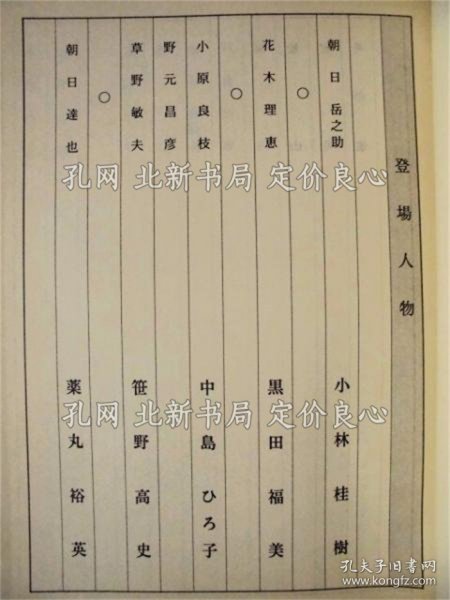 登場人物
朝日岳之助 小林桂樹
○
花木理恵 黒田福美
○
小原良枝 中島ひろ子
野元昌彦
草野敏夫 笹野高史
○
朝日達也 薬丸裕英
孔网 北新书局 定价良心
孔网 北新书局 定价良心
孔夫子旧书网
www.kongfz.com